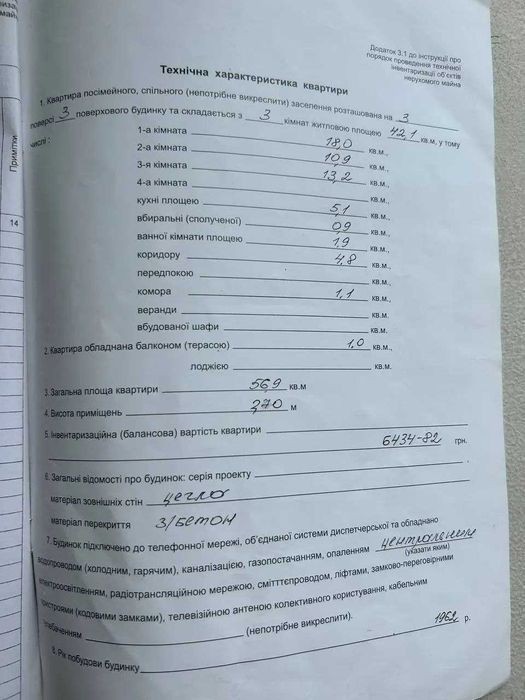 Додаток 3.1 до інструкції про
порядок проведення технічної
інвентаризації об'єктів
нерухомого майна
Технічна характеристика квартири
1. Квартира посімейного, спільного (непотрібне викреслити) заселення розташована на 3
поверсі 3 поверхового будинку та складається з 3 кімнат житловою площею 42,1 кв.м, у тому
числі :
1-а кімната 18,0 кв.м.,
2-а кімната 10,9 кв.м.,
3-я кімната 13,2 кв.м.,
4-а кімната кв.м.,
кухні площею 5,1 кв.м.,
вбиральні (сполученої) 0,9 кв.м.,
ванної кімнати площею 1,9 кв.м.,
коридору 4,8 кв.м.,
передпокою кв.м.,
комора 1,1 кв.м.,
веранди кв.м.
вбудованої шафи кв.м.
2. Квартира обладнана балконом (терасою) 1,0 кв.м.,
лоджією кв.м.
3. Загальна площа квартири 56,9 кв.м
4. Висота приміщень 2,70 м
5. Інвентаризаційна (балансова) вартість квартири
6434-82 грн.
6. Загальні відомості про будинок: серія проекту
матеріал зовнішніх стін цегло
матеріал перекриття З/бетон
7. Будинок підключено до телефонної мережі, об'єднаної системи диспетчерської та обладнано
водопроводом (холодним, гарячим), каналізацією, газопостачанням, опаленням
(указати яким)
електроосвітленням, радіотрансляційною мережою, сміттєпроводом, ліфтами, замково-переговорними
пристроями (кодовими замками), телевізійною антеною колективного користування, кабельним
телебаченням (непотрібне викреслити).
8. Рік побудови будинку 1962 р.
Примітки
14